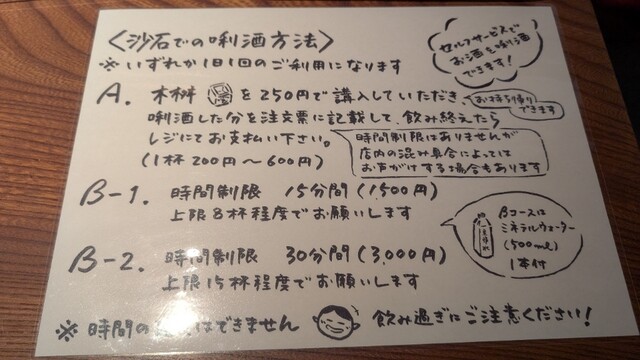 〈沙石での唎酒方法〉
セルフサービスで
お酒を唎酒
できます!
※いずれか1日1回のご利用になります
A. 木桝 を250円で購入していただき、
お持ち帰り
できます
唎酒した分を注文票に記載して、飲み終えたら
レジにてお支払い下さい。
(1杯200円〜600円)
時間制限はありませんが
店内の混み具合によっては
お声がけする場合もあります
B-1. 時間制限 15分間(1,500円)
上限8杯程度でお願いします
Bコースは
ミネラルウォーター
(500ml)
1本付
B-2. 時間制限 30分間(3,000円)
上限15杯程度でお願いします
※時間の はできません
飲み過ぎにご注意ください!